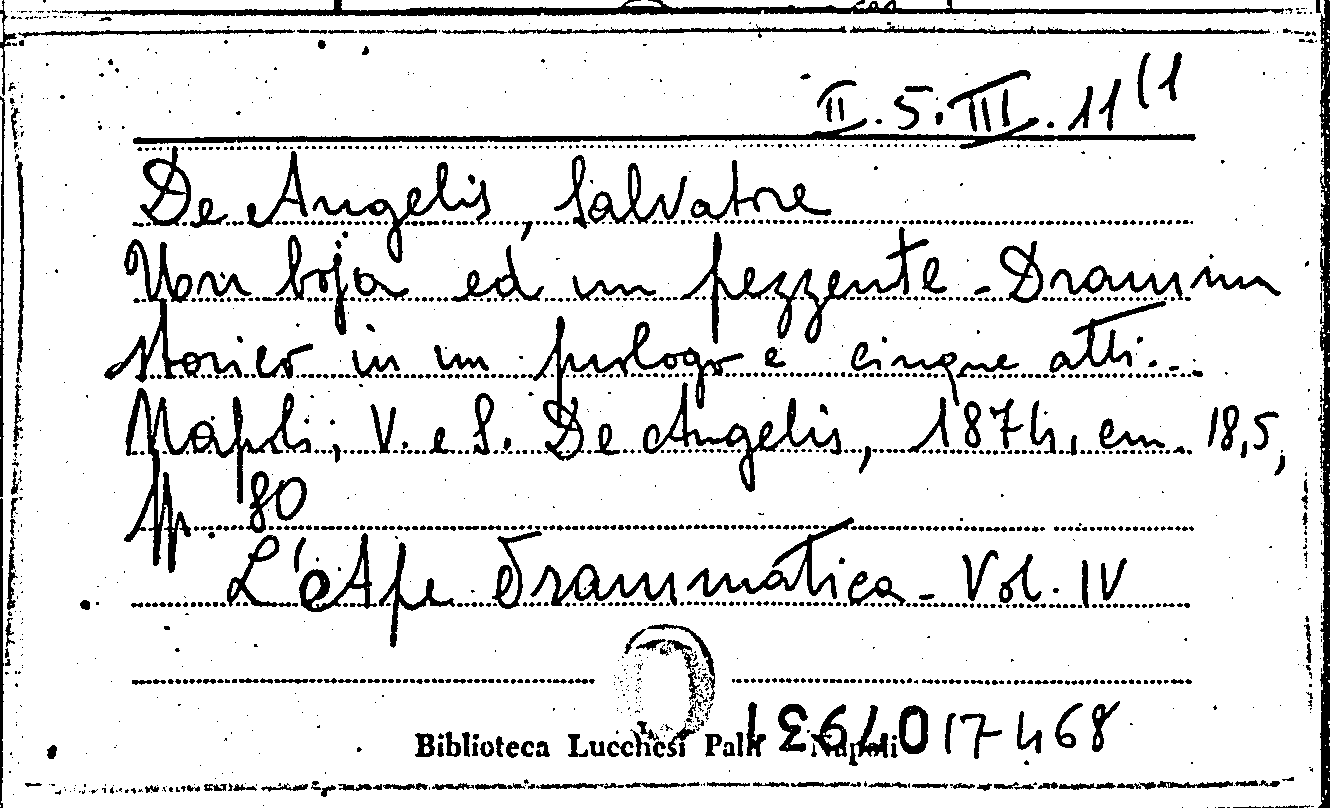 II. 5. III. 11 (1
De Angelis, Salvatore
Un boja ed un pezzente - Dramma
storico in un prologo e cinque atti...
Napoli, V. e S. De Angelis, 1874, cm. 18,5,
pp. 80
L'Ape drammatica - Vol. IV
Biblioteca Lucchesi Palli Napoli
017468